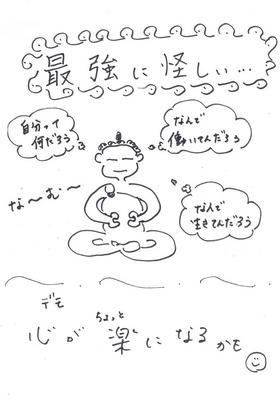 最強に怪しい…
自分って
何だろう
なんで
働いてんだろう
な〜む〜
なんで
生きてんだろう
デモ
心がちょっと楽になるかも